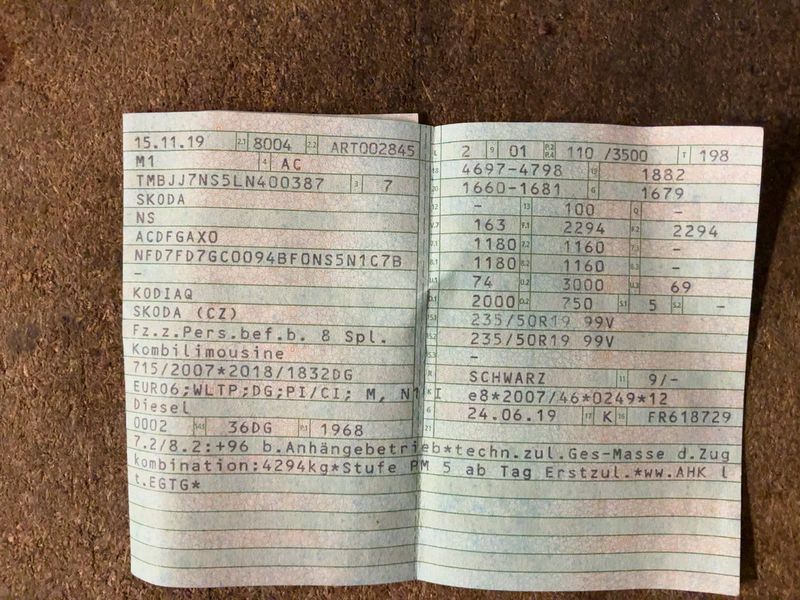 15.11.19 2.1 8004 2.2 ART002845
M1 4 AC
TMBJJ7NS5LN400387 3 7
SKODA
NS
ACDFGAX0
NFD7FD7GC0094BFONS5N1C7B
-
KODIAQ
SKODA (CZ)
Fz.z.Pers.bef.b. 8 Spl.
Kombilimousine
715/2007*2018/1832DG
EURO6;WLTP;DG;PI/CI; M, N1 I
Diesel
0002 36DG P.1 1968
L 2 9 01 P.2 P.4 110 /3500 T 198
18 4697-4798 1882
20 1660-1681 G 1679
12 - 13 100 Q -
163 F.1 2294 F.2 2294
7.1 1180 7.2 1160 -
8.1 1180 8.2 1160 -
U.1 74 U.2 3000 U.3 69
O.1 2000 O.2 750 S.1 5 S.2 -
15.1 235/50R19 99V
15.2 235/50R19 99V
15.3 -
R SCHWARZ 11 9/-
K e8*2007/46*0249*12
6 24.06.19 17 K 16 FR618729
21
7.2/8.2:+96 b.Anhängebetrieb*techn.zul.Ges-Masse d.Zug
kombination:4294kg*Stufe PM 5 ab Tag Erstzul.*ww.AHK l
t.EGTG*